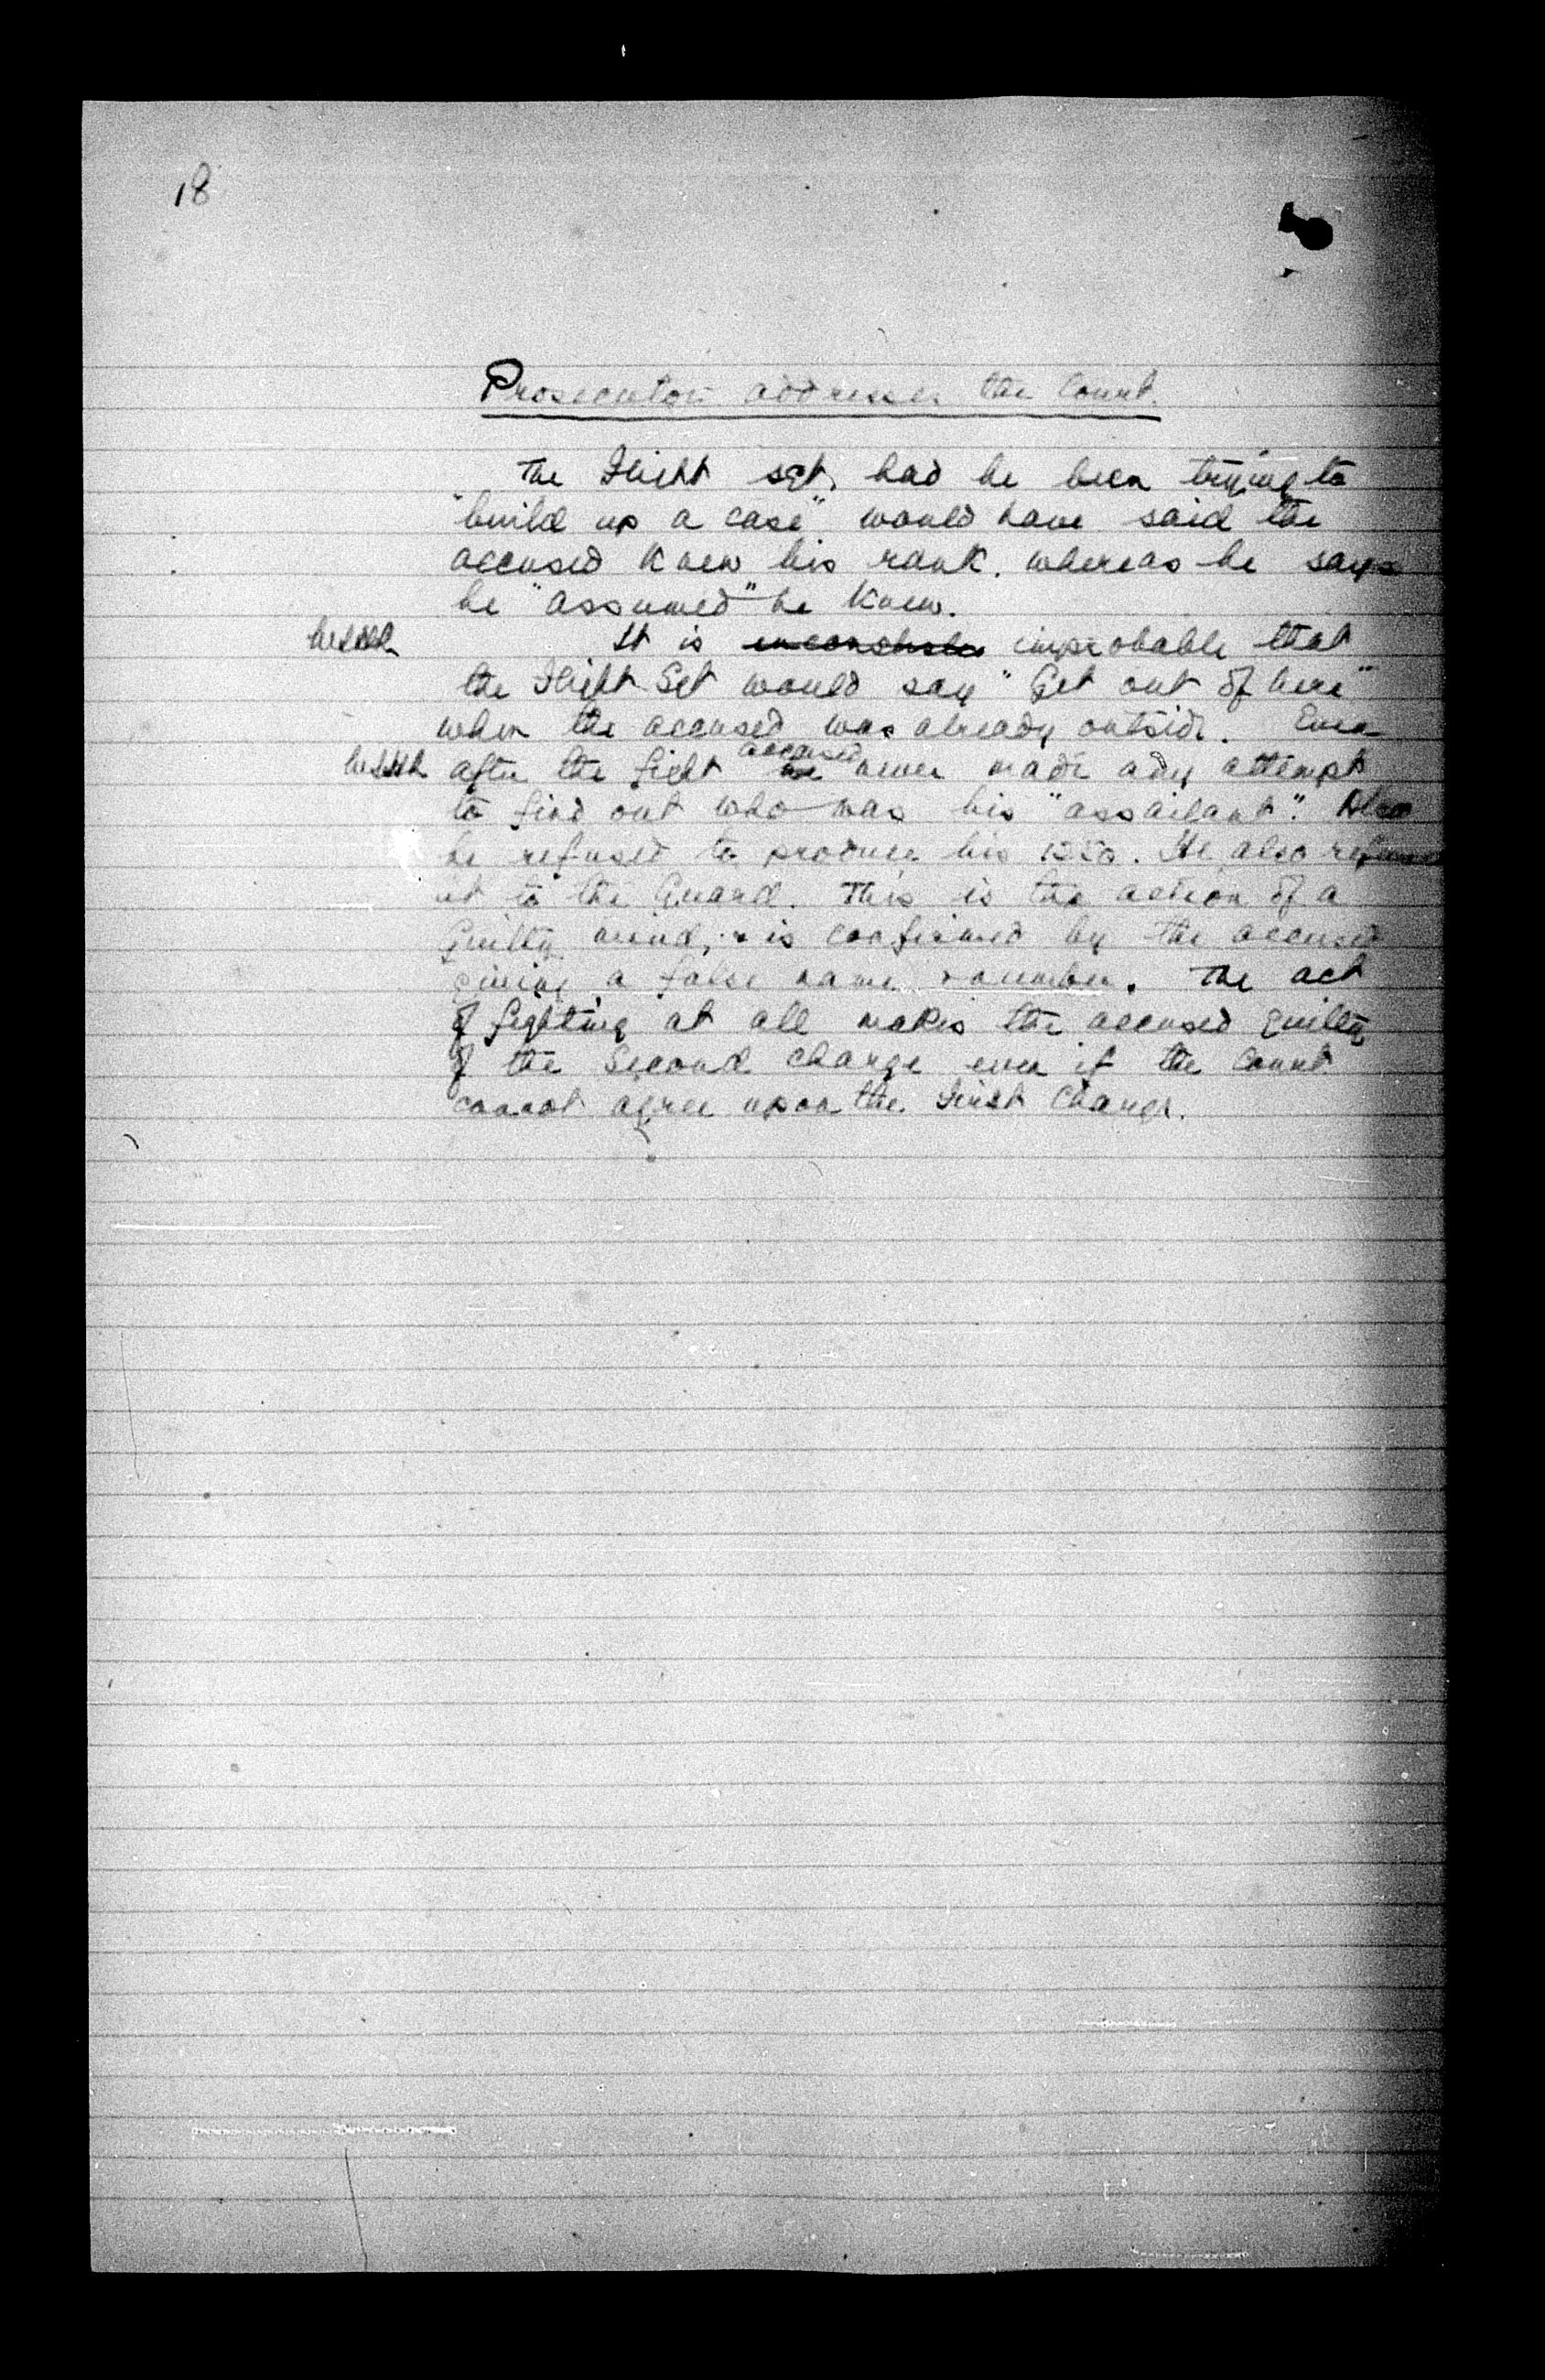 18
Prosecutor addresses the Court.
The Flight Sgt. had he been trying to
"build up a case" would have said the
accused knew his rank. whereas he says
he "assumed" he knew.
It is improbable that
the Flight Sgt would say "Get out of here"
when the accused was already outside. Even
accused
after the fight he never made any attempt
to find out who was his "assailant". Also
he refused to produce his 1250. He also refused
it to the Guard. This is the action of a
Guilty mind, & is confirmed by the accused
giving a false name & number. The act
of fighting at all makes the accused guilty
of the Second charge even if the Court
cannot agree upon the First Charge.